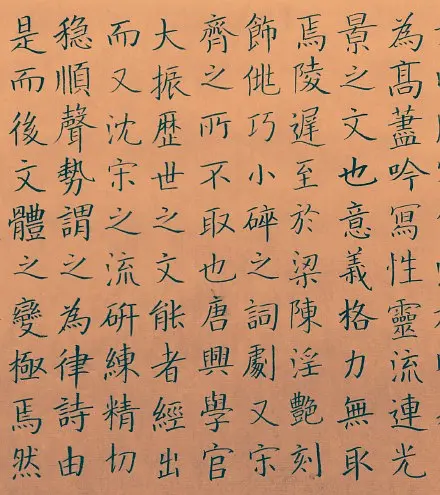 為髙蓋吟寫性靈流連光
景之文也意義格力無取
焉陵遲至於梁陳淫艷刻
飾佻巧小碎之詞劇又宋
齊之所不取也唐興學官
大振歷世之文能者經出
而又沈宋之流硏練精切
稳順聲勢謂之為律詩由
是而後文體之變極焉然